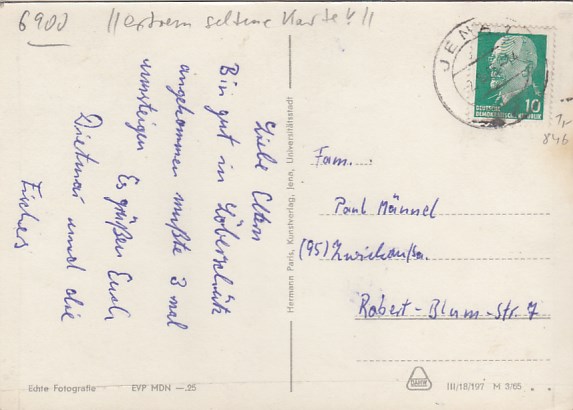 6900 //extrem seltene Karte!//
Liebe Eltern
Bin gut in Löberschütz
angekommen mußte 3 mal
umsteigen
Es grüßen Euch
Dietmar und die
Fischers
Hermann Paris, Kunstverlag, Jena, Universitätsstadt
JENA 1
DEUTSCHE
DEMOKRATISCHE REPUBLIK
10
846
Fam.
Paul Männel
(95) Zwickau/Sa.
Robert-Blum-Str. 7
Echte Fotografie EVP MDN —.25
III/18/197 M 3/65